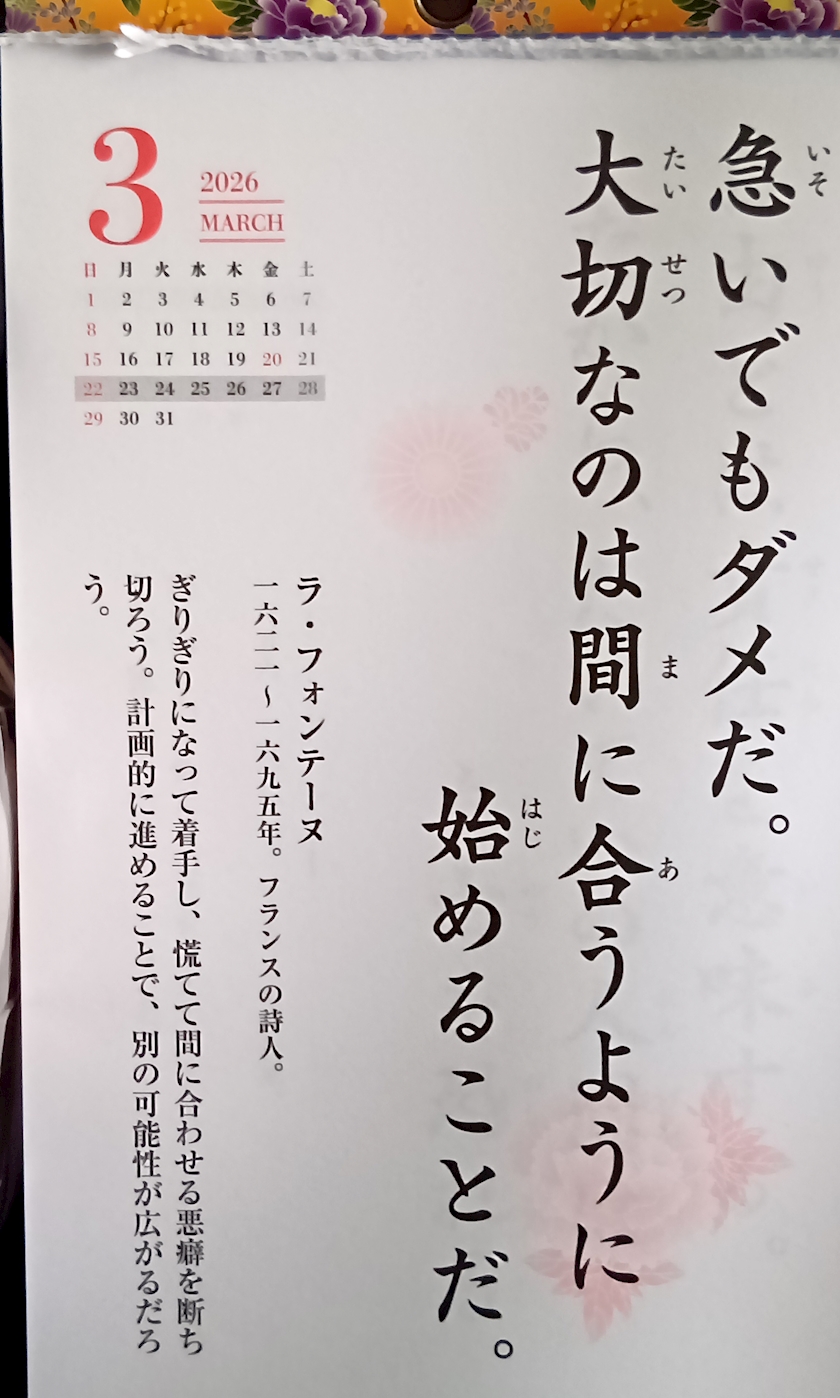 急いでもダメだ。
いそ
大切なのは間に合うように
たい
せつ
ま
あ
始めることだ。
はじ
3
2026
MARCH
日 月 火 水 木 金 土
1 2 3 4 5 6 7
8 9 10 11 12 13 14
15 16 17 18 19 20 21
22 23 24 25 26 27 28
29 30 31
ラ・フォンテーヌ
一六二一〜一六九五年。フランスの詩人。
ぎりぎりになって着手し、慌てて間に合わせる悪癖を断ち
切ろう。計画的に進めることで、別の可能性が広がるだろ
う。